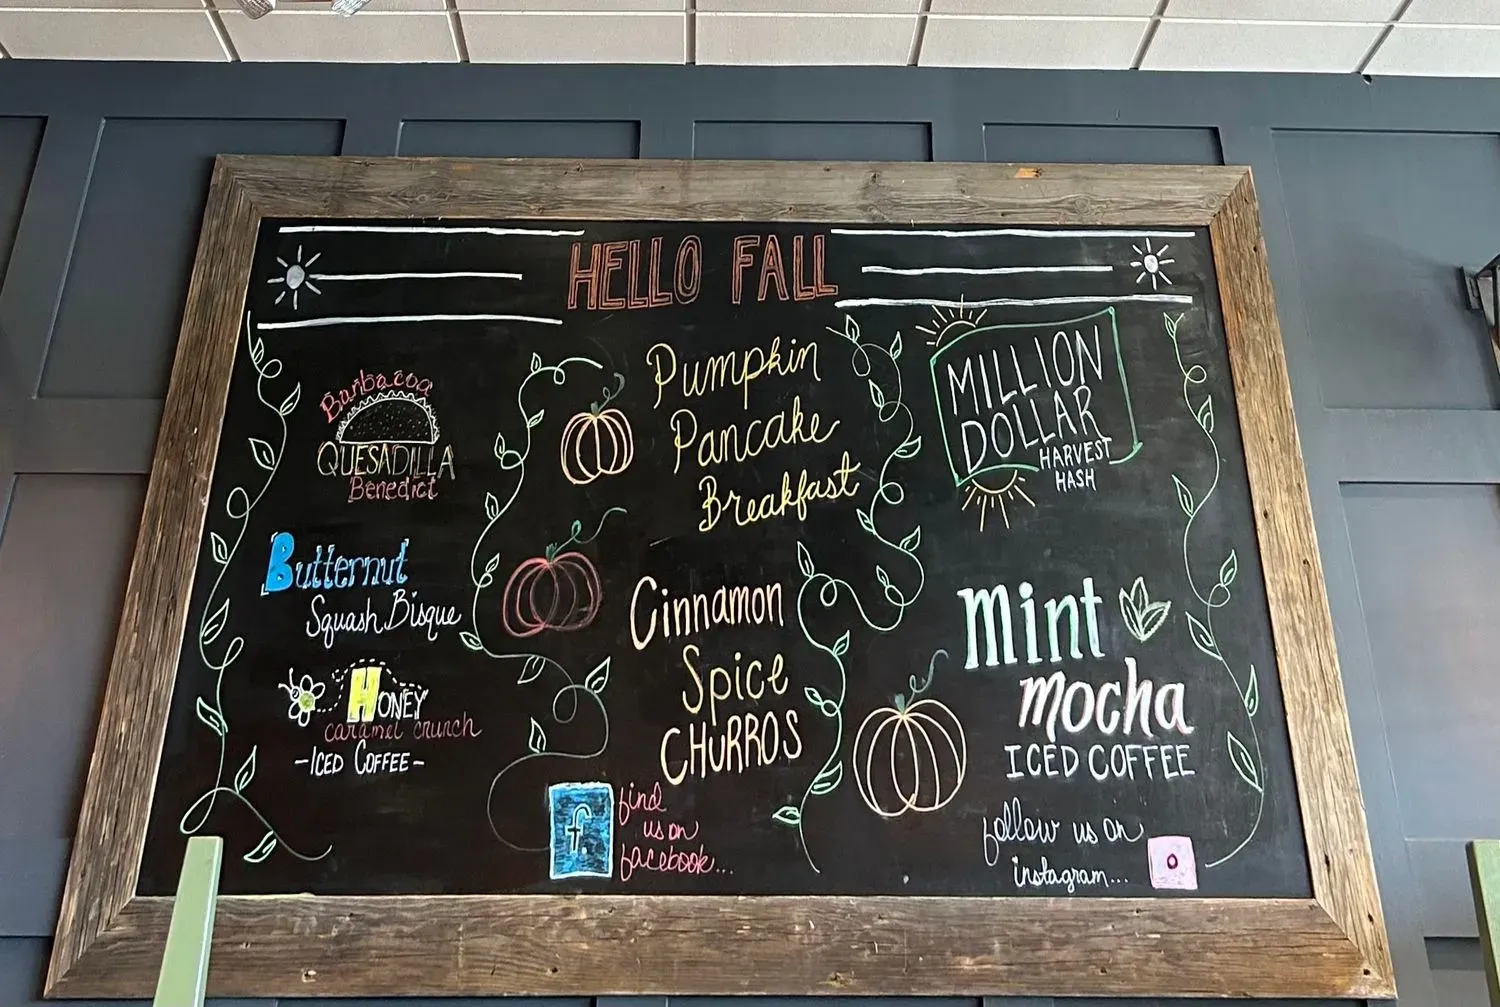 HELLO FALL
Barbacoa
QUESADILLA
Benedict
Butternut
Squash Bisque
HONEY
caramel crunch
-ICED COFFEE-
Pumpkin
Pancake
Breakfast
Cinnamon
Spice
CHURROS
f
find
us on
facebook...
MILLION
DOLLAR
HARVEST
HASH
Mint
mocha
ICED COFFEE
follow us on
instagram...